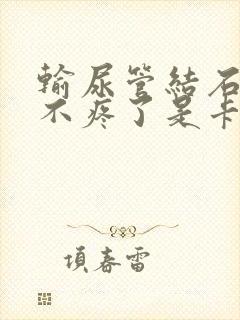 輸尿管結石
不疼了是卡
項春雷